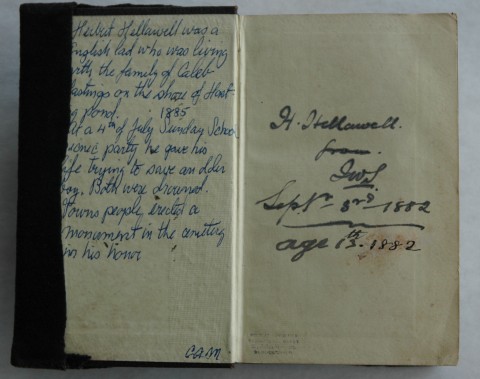 Herbert Hellawell was a
English lad who was living
with the family of Caleb
Hastings on the shore of Hast
ing pond. 1885
At a 4th of July Sunday School
picnic party he gave his
life trying to save an older
boy. Both were drowned.
Towns people erected a
monument in the cemetery
in his honor
H. Hellawell.
from
Sept 3rd 1882
age 13th 1882